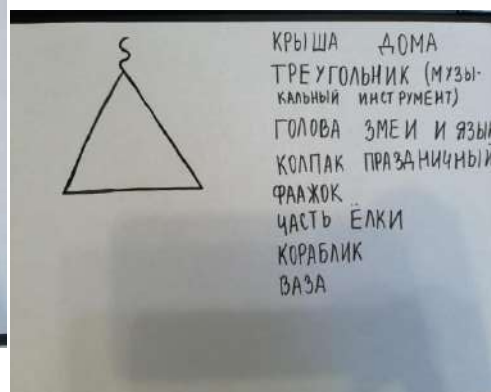 КРЫША ДОМА
ТРЕУГОЛЬНИК (МУЗЫ-
КАЛЬНЫЙ ИНСТРУМЕНТ)
ГОЛОВА ЗМЕИ И ЯЗЫК
КОЛПАК ПРАЗДНИЧНЫЙ
ФЛАЖОК
ЧАСТЬ ЁЛКИ
КОРАБЛИК
ВАЗА